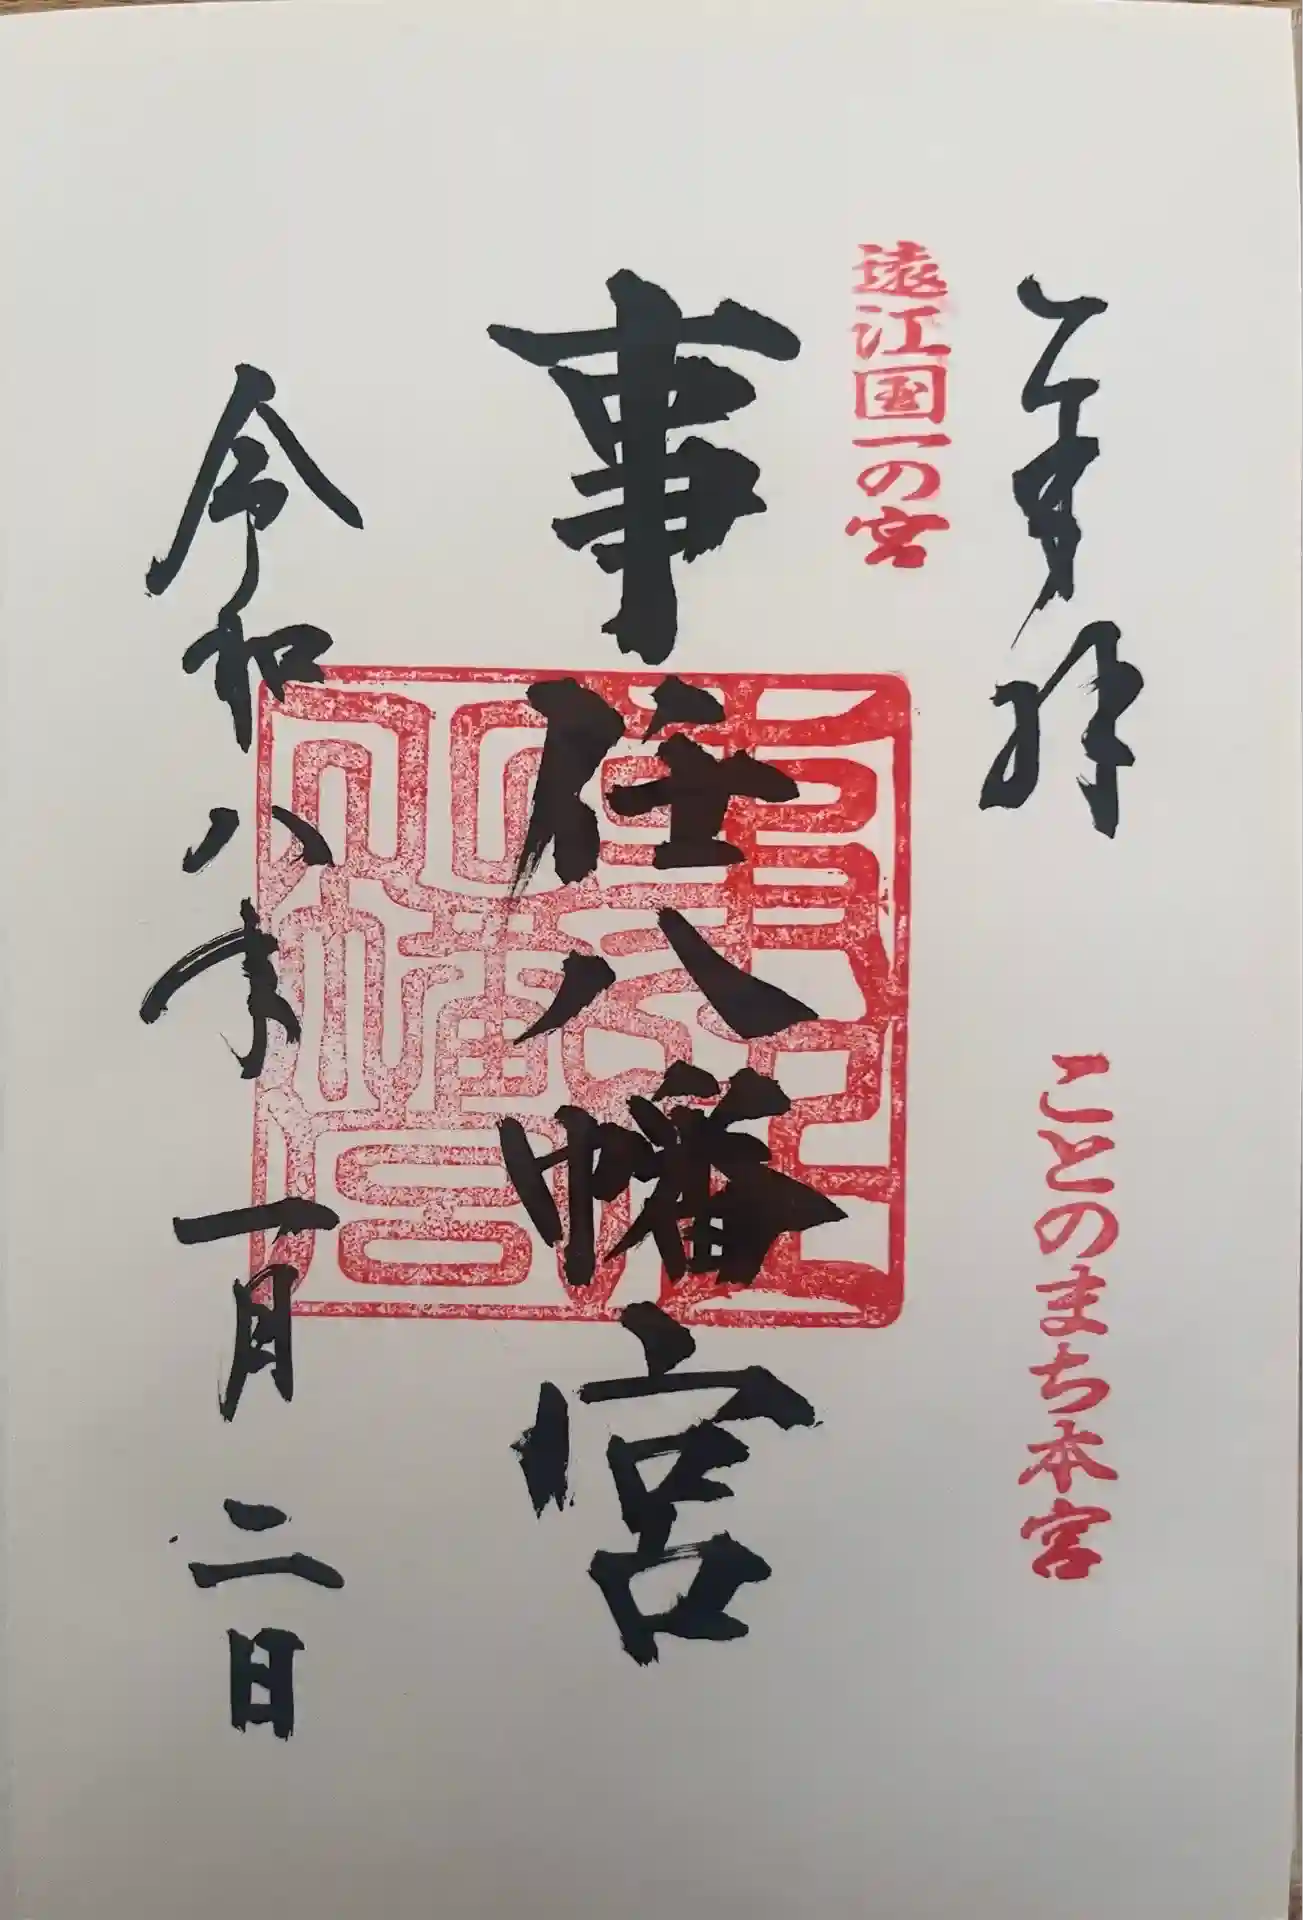 奉拝
ことのまち本宮
遠江国一の宮
事任八幡宮
事任八幡宮
令和八年一月二日